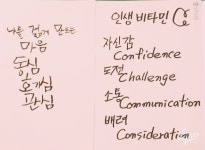 나를 젊게 만드는
마음
동심
호기심
관심
인생 비타민 C
자신감
Confidence
도전
Challenge
소통
Communication
배려
Consideration